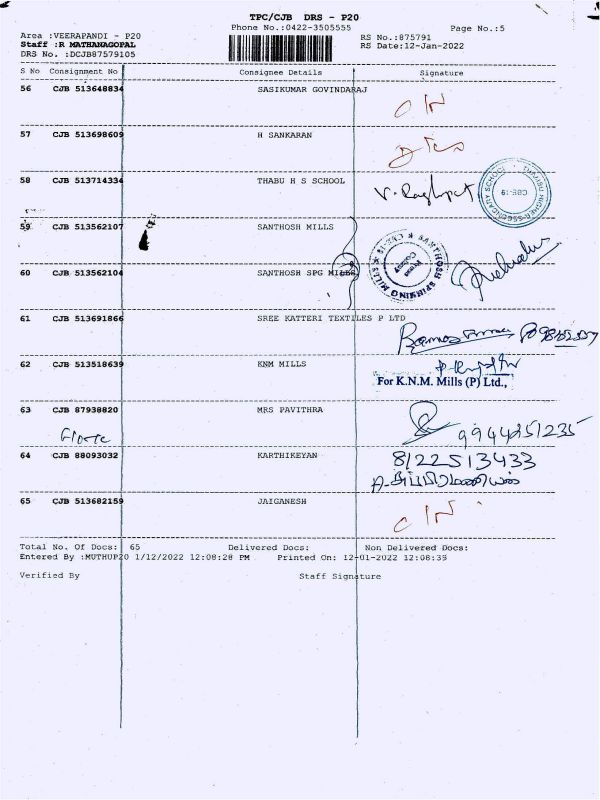 TPC/CJB DRS - P20
Phone No.:0422-3505555 Page No.:5
Area :VEERAPANDI - P20 RS No.:875791
Staff :R MATHANAGOPAL RS Date:12-Jan-2022
DRS No. :DCJB87579105
S No Consignment No Consignee Details Signature
56 CJB 513648834 SASIKUMAR GOVINDARAJ
57 CJB 513698609 H SANKARAN
58 CJB 513714334 THABU H S SCHOOL
59 CJB 513562107 SANTHOSH MILLS
60 CJB 513562104 SANTHOSH SPG MILLS
SANTHOSH SPINNING MILLS
61 CJB 513691866 SREE KATTERI TEXTILES P LTD
62 CJB 513518639 KNM MILLS
For K.N.M. Mills (P) Ltd.,
63 CJB 87938820 MRS PAVITHRA
9944351235
64 CJB 88093032 KARTHIKEYAN 8122513433
65 CJB 513682159 JAIGANESH
Total No. Of Docs: 65 Delivered Docs: Non Delivered Docs:
Entered By :MUTHUP20 1/12/2022 12:08:28 PM Printed On: 12-01-2022 12:08:39
Verified By Staff Signature